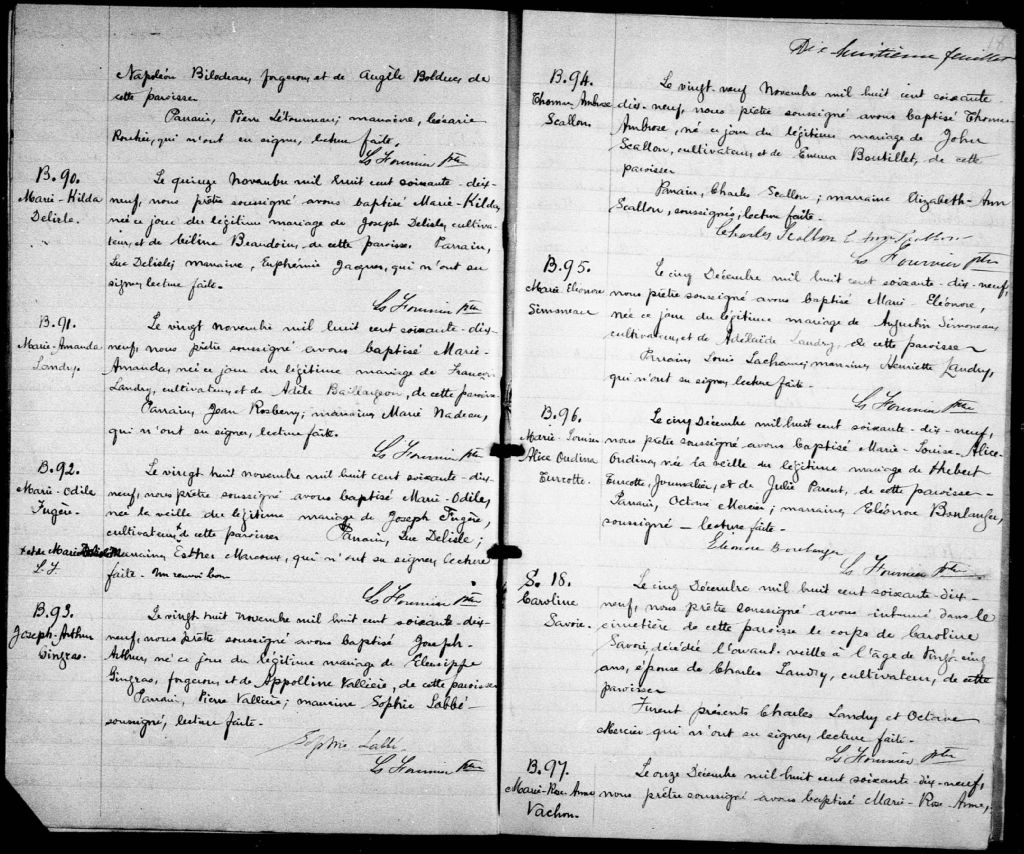 Napoléon Bilodeau, forgeron, et de Angèle Bolduc, de
cette paroisse.
Parrain, Pierre Létourneau; marraine, Césarie
qui n'ont su signer, lecture faite.
Ls Fournier Ptre
B. 90.
Marie-Kilda
Delisle.
Le quinze Novembre mil huit cent soixante-dix-
neuf, nous prêtre soussigné avons baptisé Marie-Kilda,
née ce jour du légitime mariage de Joseph Delisle, cultiva-
teur, et de Céline Beaudoin, de cette paroisse. Parrain,
Luc Delisle; marraine, Euphémie Jacques, qui n'ont su
signer, lecture faite.
Ls Fournier Ptre
B. 91.
Marie-Amanda
Landry.
Le vingt novembre mil huit cent soixante-dix-
neuf, nous prêtre soussigné avons baptisé Marie-
Amanda, née ce jour du légitime mariage de François
Landry, cultivateur, et de Adèle Baillargeon, de cette paroisse.
Parrain, Jean Rosbery; marraine, Marie Nadeau,
qui n'ont su signer, lecture faite.
Ls Fournier Ptre
B. 92.
Marie-Odile
Fugère.
x et de Marie Delisle
L. F.
Le vingt huit novembre mil huit cent soixante-dix-
neuf, nous prêtre soussigné avons baptisé Marie-Odile,
née la veille du légitime mariage de Joseph Fugère,
cultivateur x de cette paroisse Parrain, Luc Delisle;
marraine, Esther Marcoux, qui n'ont su signer, lecture
faite. Un renvoi bon.
Ls Fournier Ptre
B. 93.
Joseph-Arthur
Gingras.
Le vingt huit novembre mil huit cent soixante-dix-
neuf, nous prêtre soussigné avons baptisé Joseph-
Arthur, né ce jour du légitime mariage de Eleusippe
Gingras, forgeron, et de Appolline Vallière, de cette paroisse
Parrain, Pierre Vallière; marraine Sophie Labbé
soussigné, lecture faite.
Sophie Labbé
Ls Fournier Ptre
Dix huitième feuillet
B. 94.
Thomas Ambrose
Scallon.
Le vingt-neuf Novembre mil huit cent soixante-
dix-neuf, nous prêtre soussigné avons baptisé Thomas
Ambrose, né ce jour du légitime mariage de John
Scallon, cultivateur, et de Emma Boutillet, de cette
paroisse
Parrain, Charles Scallon; marraine Elizabeth-Ann
Scallon, soussignés, lecture faite.
Charles Scallon E Ann Scallon
Ls Fournier Ptre
B. 95.
Marie Eléonore
Simoneau
Le cinq Décembre mil huit cent soixante-dix-neuf,
nous prêtre soussigné avons baptisé Marie-Eléonore,
née ce jour du légitime mariage de Augustin Simoneau,
cultivateur, et de Adélaïde Landry, de cette paroisse
Parrain, Louis Lachance; marraine, Henriette Landry,
qui n'ont su signer, lecture faite.
Ls Fournier Ptre
B. 96.
Marie-Louise
Alice Oudina
Turcotte.
Le cinq Décembre mil huit cent soixante-dix-neuf,
nous prêtre soussigné avons baptisé Marie-Louise-Alice-
Oudina, née la veille du légitime mariage de Hubert
Turcotte, Journalier, et de Julie Parent, de cette paroisse-
Parrain, Octave Mercier; marraine, Eléonore Boulanger,
soussigné - lecture faite.
Eléonore Boulanger
Ls Fournier Ptre
S. 18.
Caroline
Savoie.
Le cinq Décembre mil huit cent soixante-dix-
neuf, nous prêtre soussigné avons inhumé dans le
cimetière de cette paroisse le corps de Caroline
Savoie, décédée l'avant-veille à l'âge de vingt-cinq
ans, épouse de Charles Landry, cultivateur, de cette
paroisse
Furent présents Charles Landry et Octave
Mercier qui n'ont su signer, lecture faite.
Ls Fournier Ptre
B. 97.
Marie-Rose-Anne
Vachon.
Le onze Décembre mil huit cent soixante-dix-neuf,
nous prêtre soussigné avons baptisé Marie-Rose-Anne,